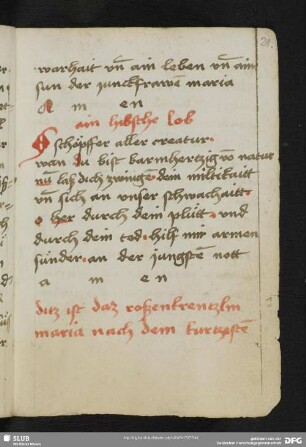 warhait vn̄ ain leben vn̄ ain
sun der junckfrawē maria
A m en
ain hibsche lob
O schöpffer aller creatur.
wan du bist barmhertzig vō natur
nū laß dich zwinge dein miltikaitt
vn̄ sich an unser schwachaitt.
o her durch dein plůtt. vnd
durch dein tod. hilf mir armen
sünder. an der jungstē nott
a m en
ditz ist daz roßenkrentzlin
maria nach dem kurtzstē
SLUB
DFG